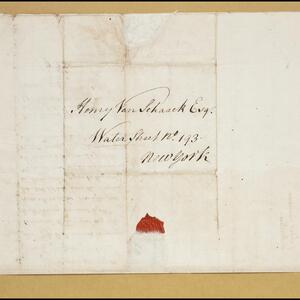 Henry Van Schaack Esqr.
Water Street No. 193
New York